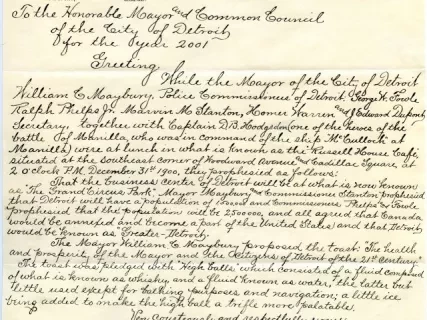 To the Honorable Mayor and Common Council
of the City of Detroit
for the Year 2001
Greeting
While the Mayor of the City of Detroit
William C. Maybury, Police Commissioners of Detroit. George W. Fowle
Ralph Phelps Jr. Marvin M. Stanton, Homer Warren and J Edward Dupont
Secretary, together with Captain D.B. Hodgsdon (one of the heroes of the
battle of Manilla, who was in command of the ship McCulloch at
Manilla) were at lunch in what is known as the Russell House Café,
situated at the Southeast corner of Woodward Avenue and Cadillac Square at
2 o'clock P.M. December 31st 1900, they prophesied as follows:
That the business center of Detroit will be at what is now known
as "The Grand Circus Park". Mayor Maybury and Commissioner Stanton prophesied
that Detroit will have a population of and Commissioners Phelps & Fowle
prophesied that the population will be 2500000, and all agreed that Canada
would be annexed and become a part of the United States and that Detroit
would be known as "Greater Detroit."
The Mayor William C Maybury proposed the toast: "The health
and prosperity of the Mayor and the Citizens of Detroit of the 21st Century."
The toast was pledged with "High Balls" which consisted of a fluid compound
of what is known as whiskey and a fluid known as water, the latter but
little used except for bathing purposes and navigation; a little ice
being added to make the high ball a trifle more palatable.
Very Courteously and respectfully